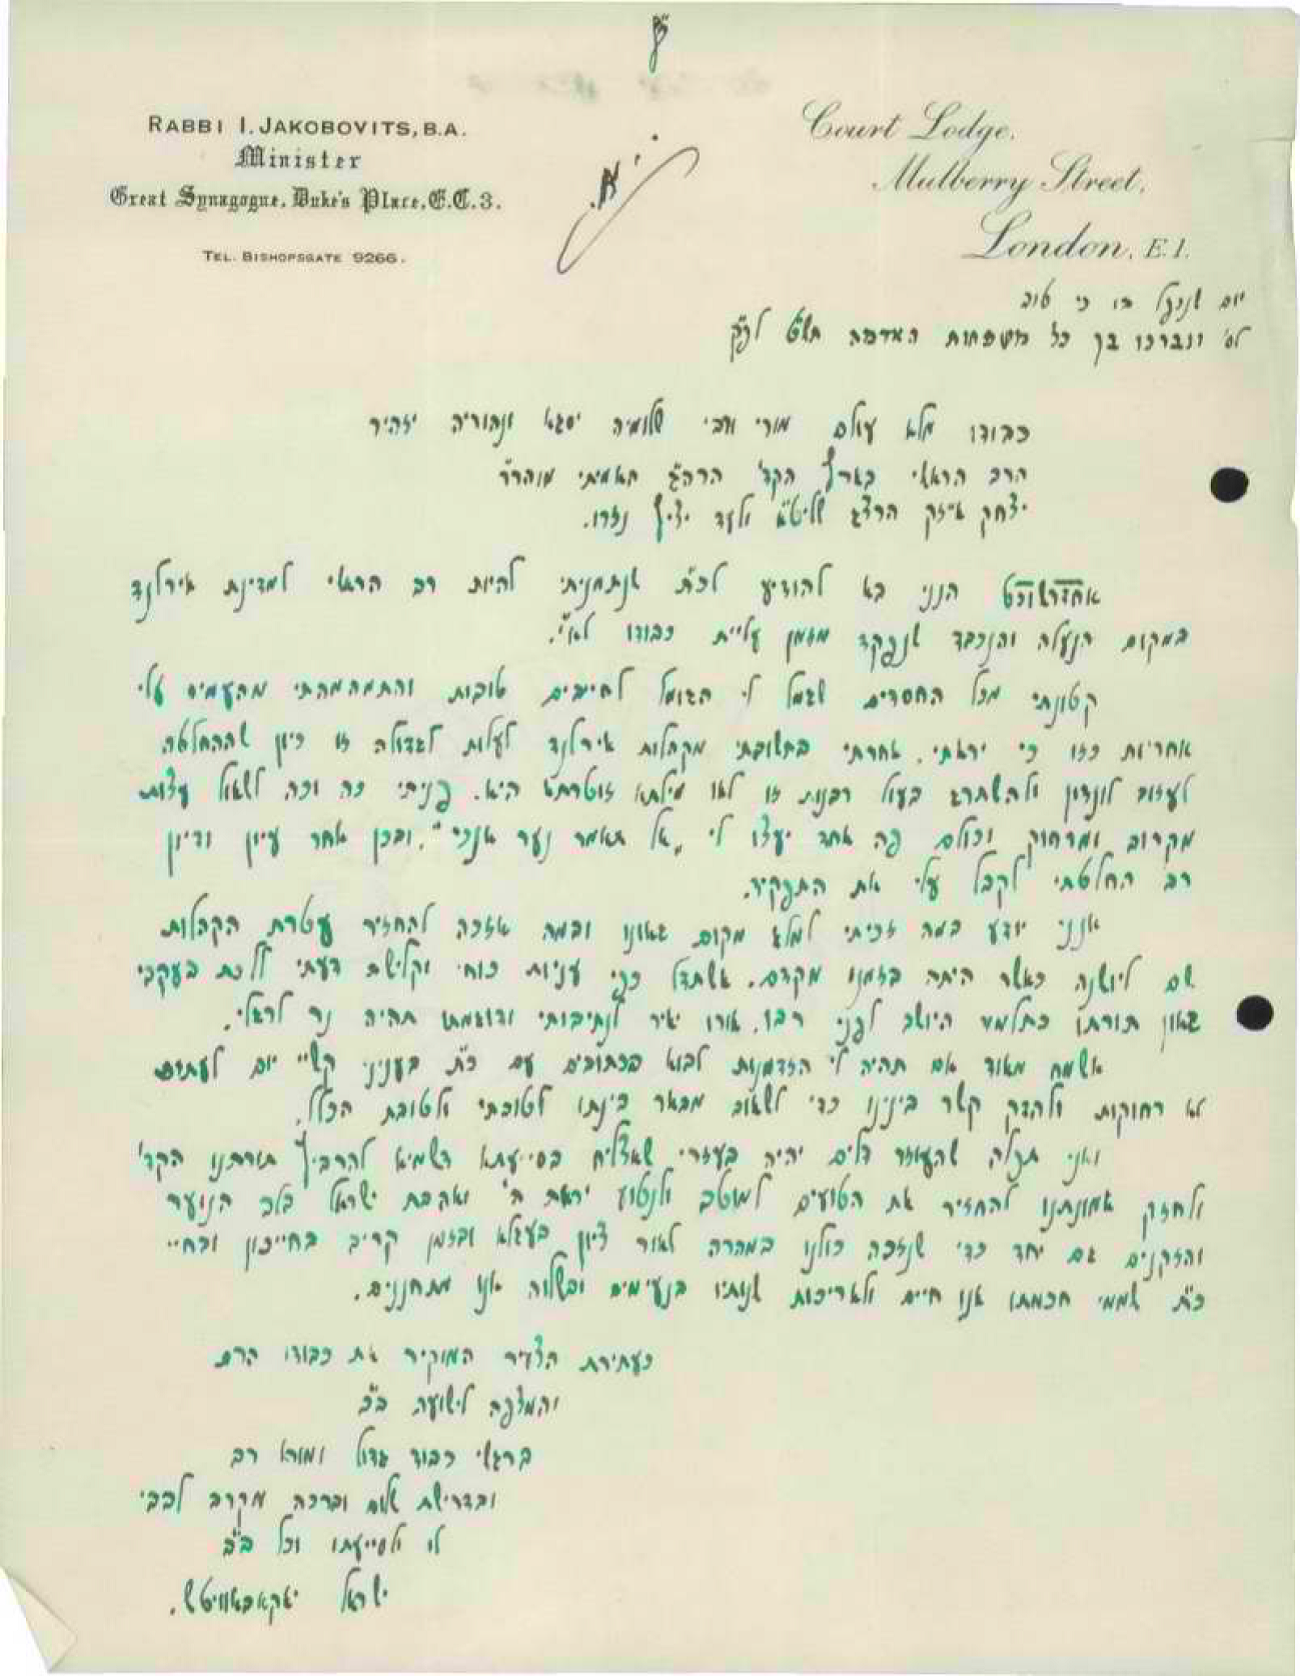 RABBI I. JAKOBOVITS, B.A.
Minister
Great Synagogue, Duke's Place, E.C.3.
TEL. BISHOPSGATE 9266.
Court Lodge,
Mulberry Street,
London, E.1.
יום שנכפל בו כי טוב
לס' ונברכו בך כל משפחות האדמה תש"ט לפ"ק
כבודו מלא עולם מורי ורבי שלומיה יסגא ונהוריה יזהיר
הרב הראשי בארץ הקד' הרה"ג האמיתי מוהר"ר
יצחק אייזק הרצג שליט"א ולעד יציץ נזרו.
אחדרשו"כט הנני בא להודיע לכ"ת שנתמניתי להיות רב הראשי למדינת אירלנד
במקום הנעלה והנכבד שנפקד מזמן עליית כבודו לא"י.
קטונתי מכל החסדים שגמל לי הגומל לחייבים טובות והתמהמהתי מהעמיס עלי
אחריות כזו כי יראתי. אחרתי בתשובתי מקהלות אירלנד לעלות לגדולה זו כיון שההחלטה
לעזוב לונדון ולהשתרג בעול רבנות זו לאו מילתא זוטרתא היא. פניתי כה וכה לשאול עצות
מקרוב ומרחוק וכולם פה אחד יעצו לי "אל תאמר נער אנכי", ובכן אחר עיון ודיון
רב החלטתי לקבל עלי את התפקיד.
אנני יודע במה זכיתי למלא מקום גאונו ובמה אזכה להחזיר עטרת הקהלות
שם ליושנה כאשר היתה בזמנו מקדם. אשתדל כפי עניות כוחי וקלישת דעתי ללכת בעקבי
גאון תורתו כתלמיד היושב לפני רבו. אורו יאיר לנתיבותי ודוגמתו תהיה נר לרגלי.
אשמח מאוד אם תהיה לי הזדמנות לבוא בכתובים עם כ"ת בעניני קשיי יום לעתים
לא רחוקות ולהדק קשר בינינו כדי לשאוב מבאר בינתו לטובתי ולטובת הכלל.
ואני תפלה שהעוזר דלים יהיה בעזרי שאצליח בסייעתא דשמיא להרביץ תורתנו הקד'
ולחזק אמונתנו להחזיר את הטועים למוטב ולנטוע יראת ה' ואהבת ישראל בלב הנוער
והזקנים גם יחד כדי שנזכה כולנו במהרה לאור ציון בעגלא ובזמן קריב בחייכון ובחיי
כ"ת שממי חכמתו אנו חיים ולאריכות שנותיו בנעימים ובשלוה אנו מתחננים.
כעתירת הצעיר המוקיר את כבודו הרם
והמצפה לישועה בב"א
ברגשי כבוד גדול ומורא רב
ובדרישת שלום וברכה מקרב לבבי
לו ולסייעתו וכל ב"ב
ישראל יאקאבאוויטש.